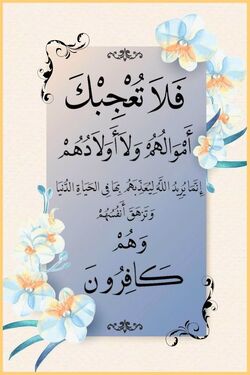 فَلَا تُعْجِبْكَ
أَمْوَالُهُمْ وَلَا أَوْلَادُهُمْ
إِنَّمَا يُرِيدُ اللَّهُ لِيُعَذِّبَهُمْ بِهَا فِي الْحَيَاةِ الدُّنْيَا
وَتَزْهَقَ أَنْفُسُهُمْ
وَهُمْ
كَافِرُونَ